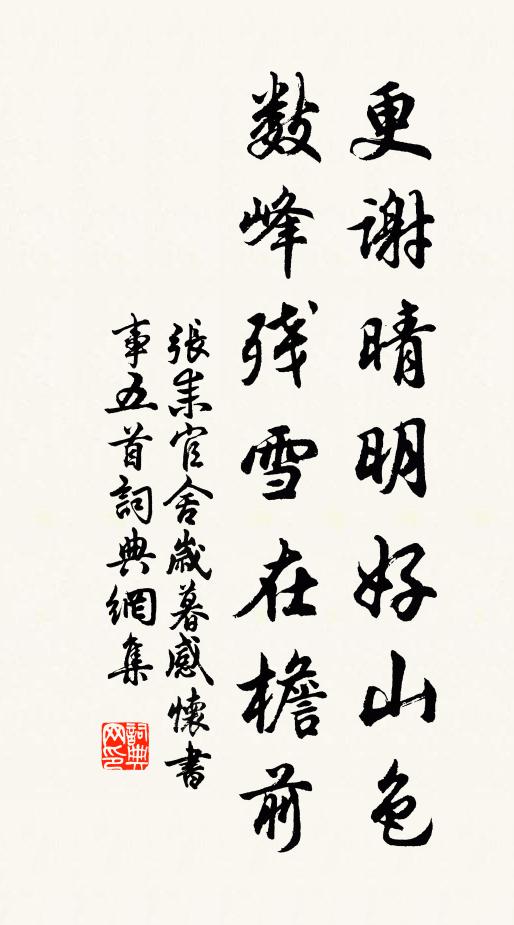 更谢晴明好山色
数峰残雪在檐前
張耒官舍歲暮感懷書
事五首詞典網集
詞典
网印